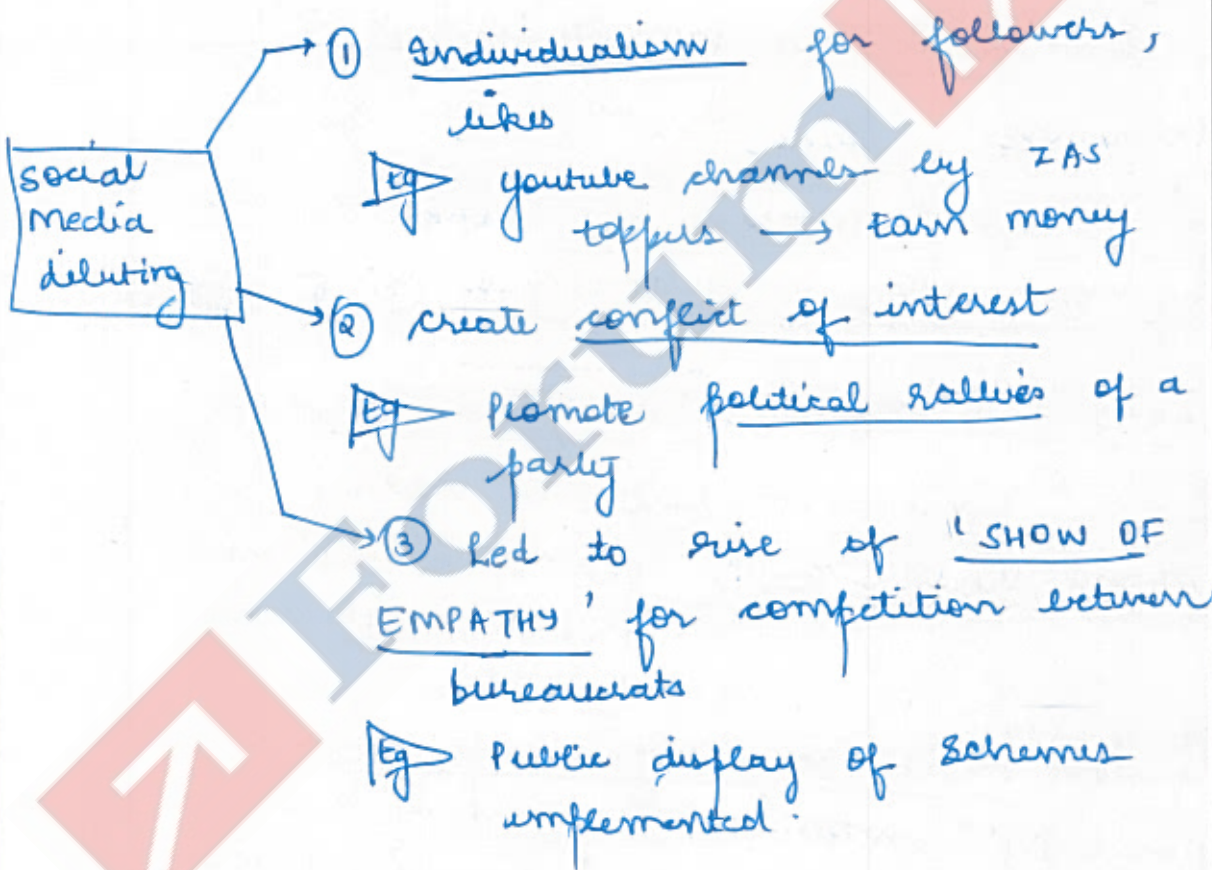 social
media
diluting
① Individualism for followers,
likes
Eg youtube channels by IAS
toppers → Earn money
② create conflict of interest
Eg Promote political rallies of a
party
③ Led to rise of "SHOW OF
EMPATHY' for competition between
bureaucrats
Eg Public display of Schemes
implemented.
Forum